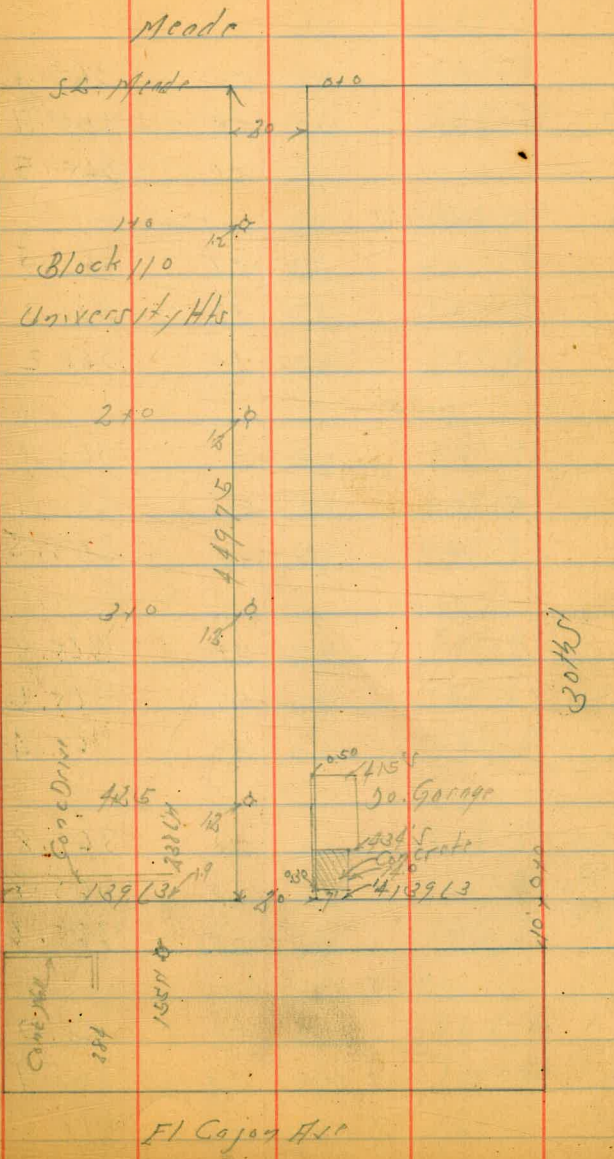 Meade
S.L. Meade
0+0
20
1+0
12
Block 110
University Hts
2+0
12
449.75
3+0
12
30th St
Conc Drive
0.50
415'S
Jo. Garage
425
12
434'S
Concrete
1.9
139 L3
20
4139 L3
10'
0+0
155'N
Conc Wall
284
El Cajon Ave